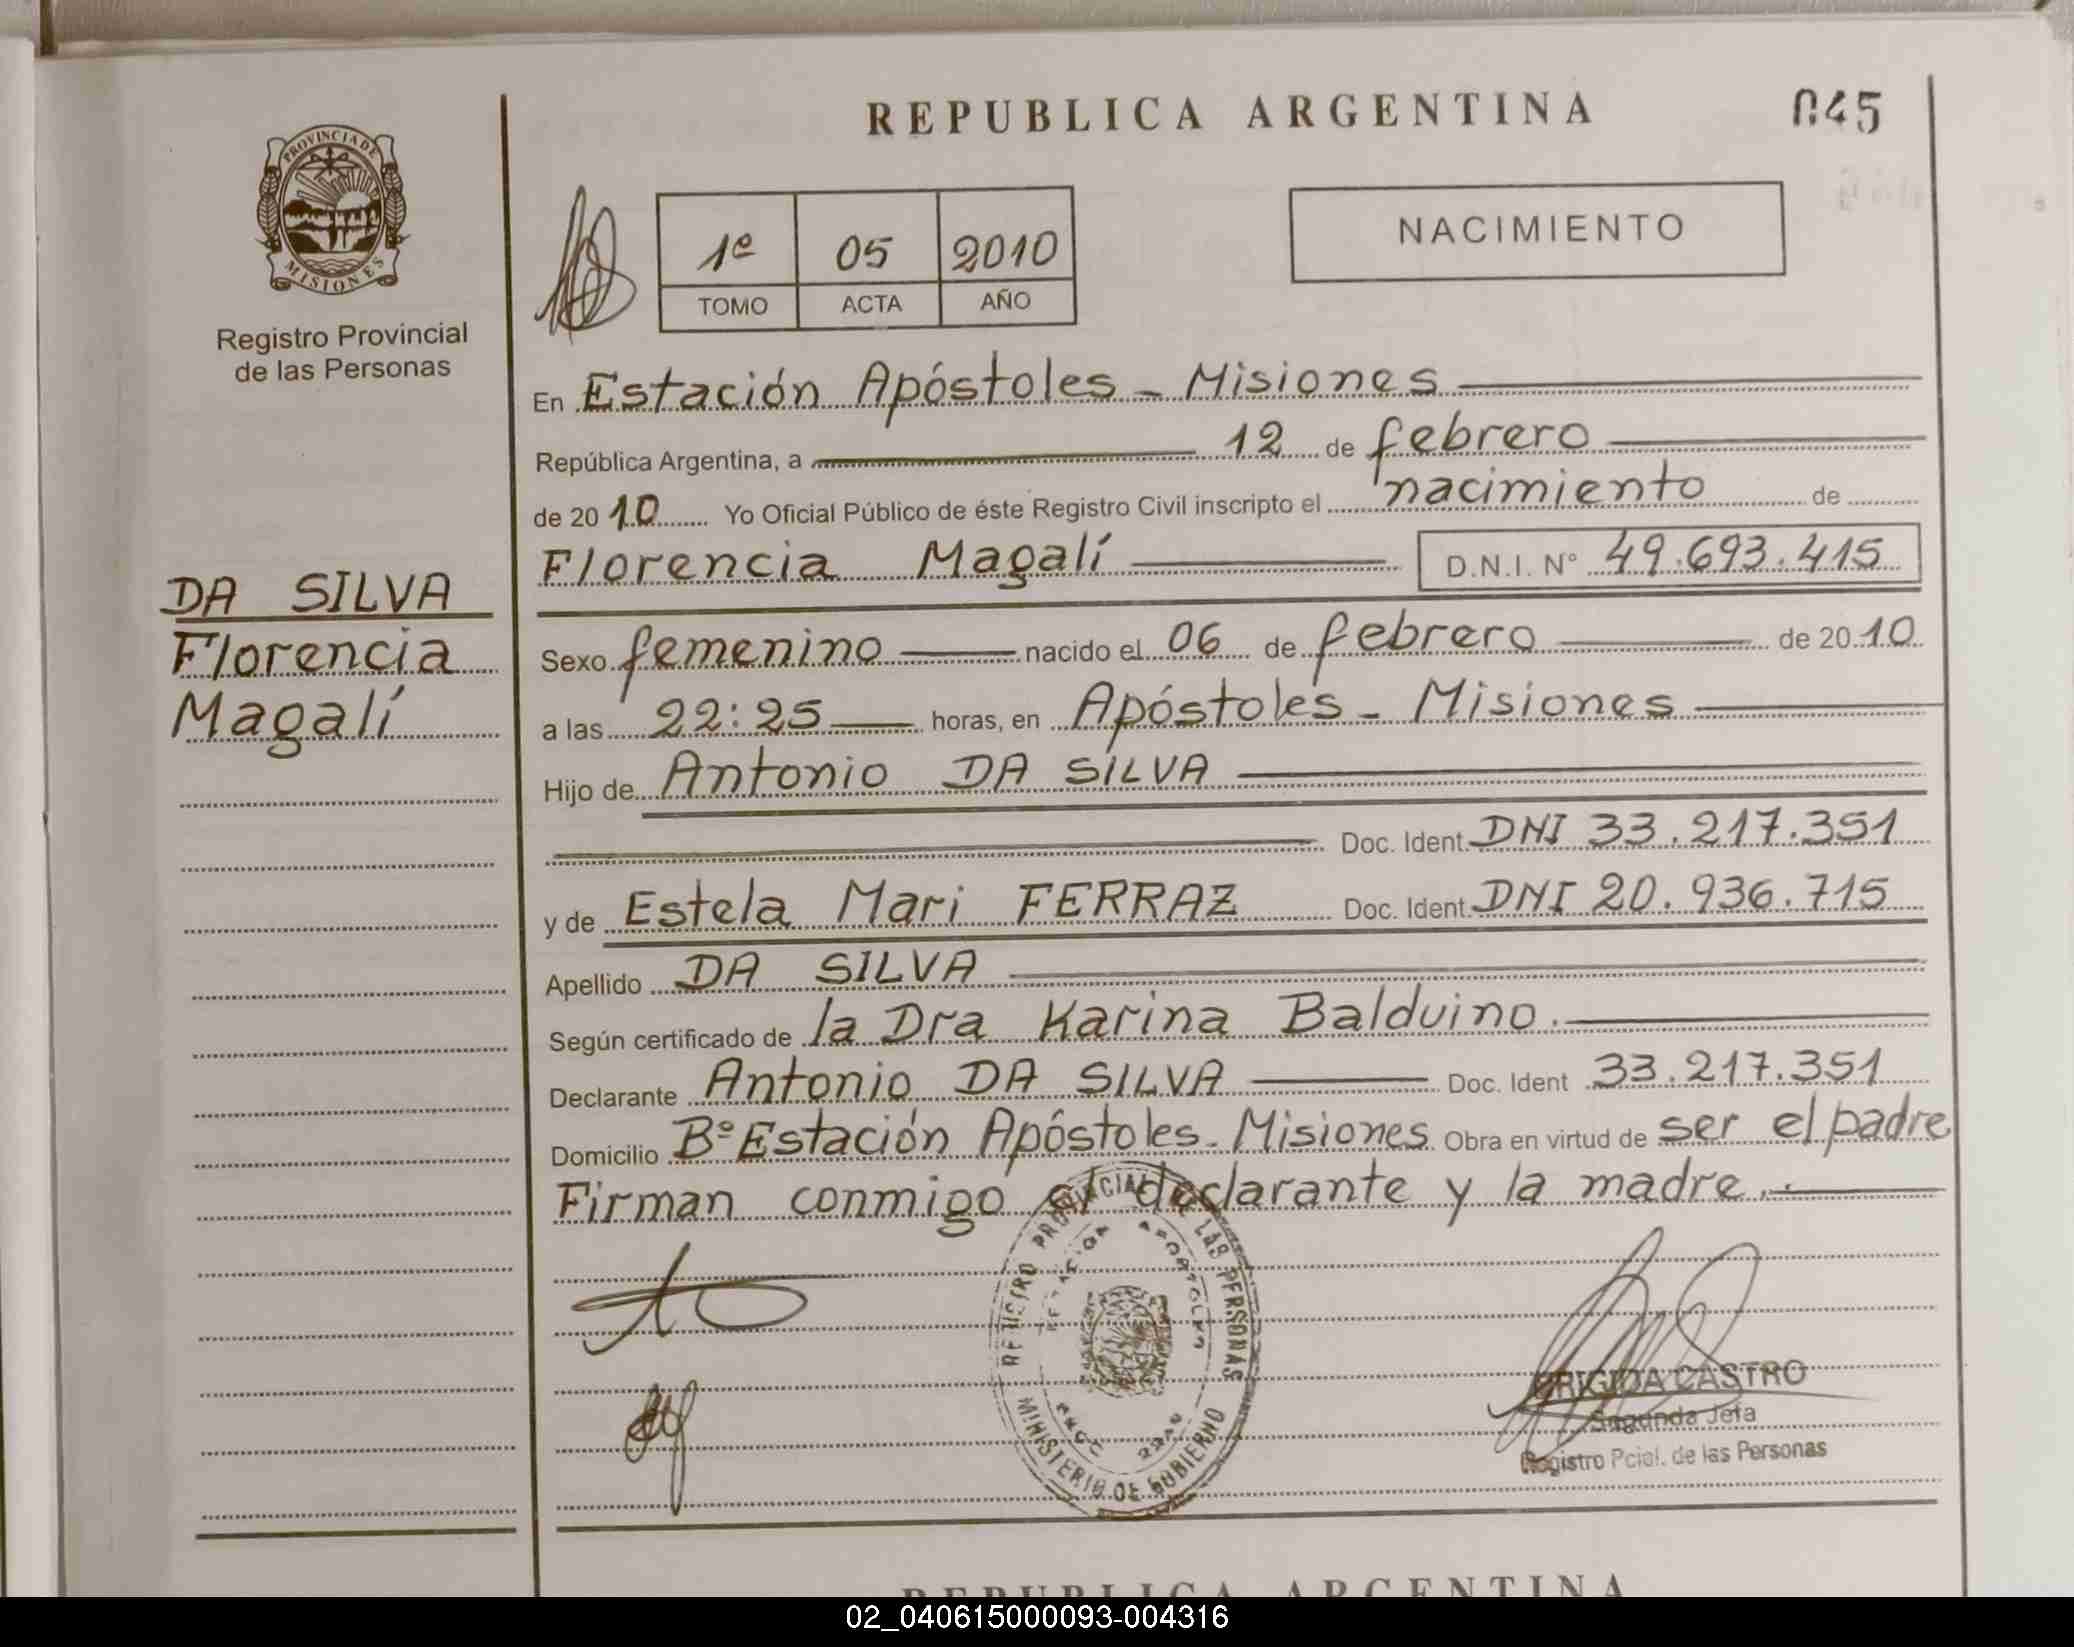 REPUBLICA ARGENTINA
045
PROVINCIA DE
MISIONES
Registro Provincial
de las Personas
1º 05 2010
TOMO ACTA AÑO
NACIMIENTO
En Estación Apóstoles - Misiones
República Argentina, a 12 de febrero
de 2010 Yo Oficial Público de éste Registro Civil inscripto el nacimiento de
Florencia Magalí D.N.I. Nº 49.693.415
DA SILVA
Florencia
Magalí
Sexo femenino nacido el 06 de febrero de 2010
a las 22:25 horas, en Apóstoles - Misiones
Hijo de Antonio DA SILVA
Doc. Ident. DNI 33.217.351
y de Estela Mari FERRAZ Doc. Ident. DNI 20.936.715
Apellido DA SILVA
Según certificado de la Dra Karina Balduino.
Declarante Antonio DA SILVA Doc. Ident 33.217.351
Domicilio Bº Estación Apóstoles - Misiones Obra en virtud de ser el padre
Firman conmigo el declarante y la madre.
REGISTRO PROVINCIAL DE LAS PERSONAS
MINISTERIO DE GOBIERNO
BRIGIDA CASTRO
Segunda Jefa
Registro Pcial. de las Personas
REPUBLICA ARGENTINA
02_040615000093-004316